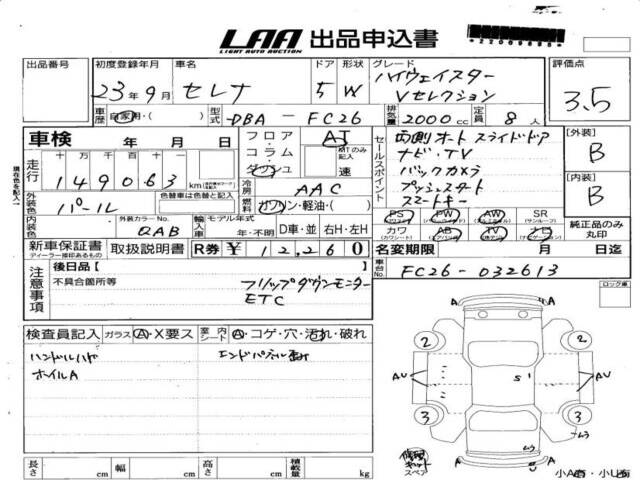 LAA 出品申込書
LIGHT AUTO AUCTION
*22069695*
出品番号 初度登録年月 車名 ドア 形状 グレード 評価点
23年9月 セレナ 5 W ハイウェイスター
Vセレクション
3.5
車歴 自家用・( ) 型式 DBA-FC26 排気量 2000cc 定員 8人
車検 年 月 日
フロア・コラム・ダッシュ AT
MTのみ記入
速
走行 十万千百十一
149063 km
冷房 AAC
外装色 パール 色替車は色替と記入
燃料 ガソリン・軽油・( )
内装色 外装カラーNo. QAB 輸入車 モデル年式 年・不明 D車・並 右H・左H
セールスポイント
両側オートスライドドア
ナビ・TV
バックカメラ
プッシュスタート
スマートキー
[外装] B
[内装] B
PS PW AW SR
(パワステ) (パワーウィンドウ) (アルミホイール) (サンルーフ)
カワ AB TV ナビ
(カワシート) (エアバッグ)
純正品のみ丸印
新車保証書 取扱説明書 R券 ¥12,260
ディーラー捺印あるもの
名変期限 月 日迄
車台No. FC26-032613
注意事項
後日品[ ]
不具合箇所等 フリップダウンモニター
ETC
ロック車
現在色を記入
検査員記入 ガラス A・X要ス 室内 シート A・コゲ・穴・汚れ・破れ
ハンドルハゲ
ホイルA
A
2 2
AU AU
S1
3 3
ムラ
ムラ
AU
修理キット
スペア
小A有・小U有
長さ cm 幅 cm 高さ cm 積載量 kg